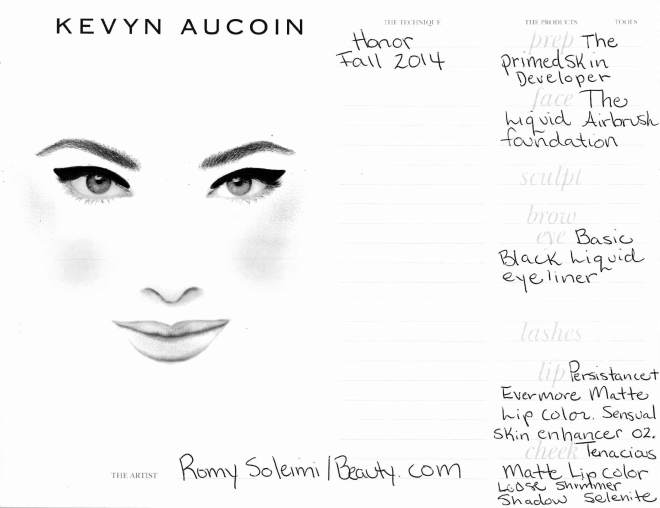 KEVYN AUCOIN
THE TECHNIQUE
Honor
Fall 2014
THE PRODUCTS
TOOLS
prep The
primed skin
Developer
face The
Liquid Airbrush
foundation
sculpt
brow
eye Basic
Black Liquid
eyeliner
lashes
lip Persistance+
Evermore Matte
Lip color. Sensual
skin enhancer 02.
cheek Tenacious
Matte Lip color
Loose Shimmer
Shadow Selenite
THE ARTIST
Romy Soleimi/Beauty.com